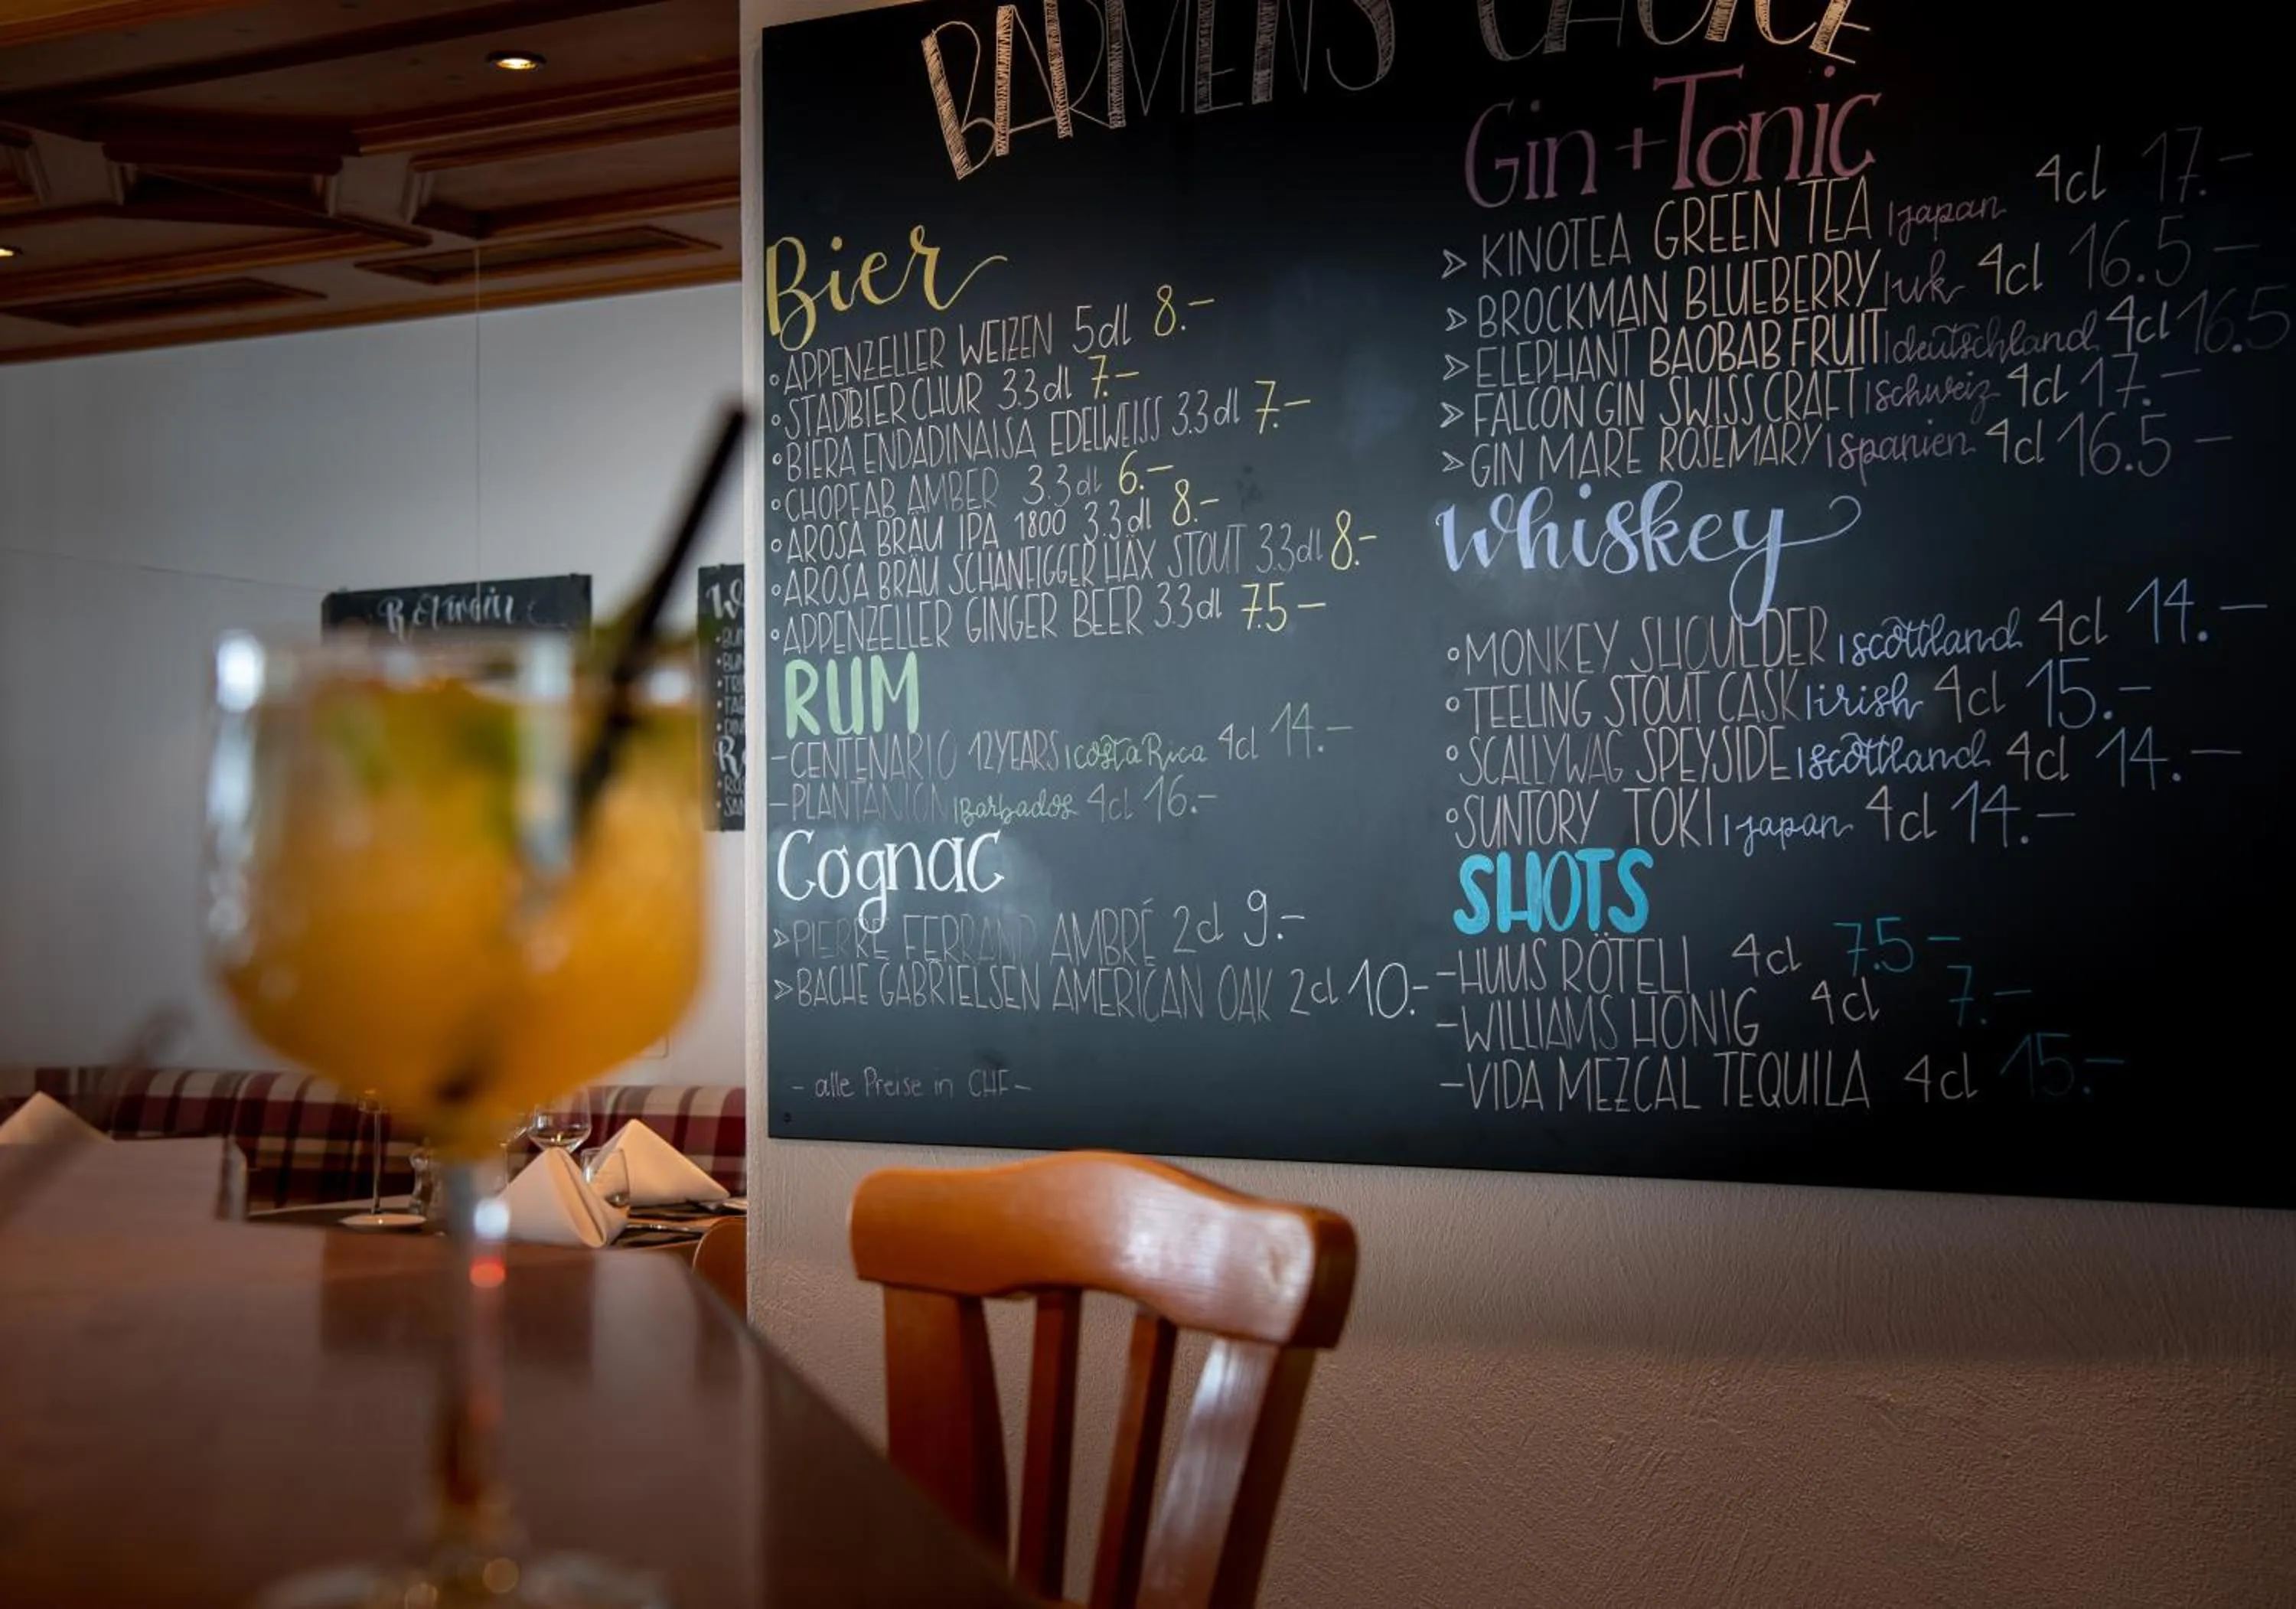 BARMENS CHOICE
Bier
◦ APPENZELLER WEIZEN 5dl 8.–
◦ STADTBIER CHUR 3.3dl 7.–
◦ BIERA ENDADINAISA EDELWEISS 3.3dl 7.–
◦ CHOPFAB AMBER 3.3dl 6.–
◦ AROSA BRÄU IPA 1800 3.3dl 8.–
◦ AROSA BRÄU SCHANFIGGER HÄX STOUT 3.3dl 8.–
◦ APPENZELLER GINGER BEER 3.3dl 7.5 –
RUM
– CENTENARIO 12YEARS | Costa Rica 4cl 14.–
– PLANTANION | Barbados 4cl 16.–
Cognac
> PIERRE FERRAND AMBRÉ 2cl 9.–
> BACHE GABRIELSEN AMERICAN OAK 2cl 10.–
– alle Preise in CHF –
Gin + Tonic
> KINOTEA GREEN TEA | japan 4cl 17.–
> BROCKMAN BLUEBERRY | uk 4cl 16.5 –
> ELEPHANT BAOBAB FRUIT | deutschland 4cl 16.5
> FALCON GIN SWISS CRAFT | schweiz 4cl 17.–
> GIN MARE ROSEMARY | spanien 4cl 16.5 –
Whiskey
◦ MONKEY SHOULDER | scottland 4cl 14.–
◦ TEELING STOUT CASK | irish 4cl 15.–
◦ SCALLYWAG SPEYSIDE | scottland 4cl 14.–
◦ SUNTORY TOKI | japan 4cl 14.–
SHOTS
– HUUS RÖTELI 4cl 7.5 –
– WILLIAMS HONIG 4cl 7.–
– VIDA MEZCAL TEQUILA 4cl 15.–
Rotwein